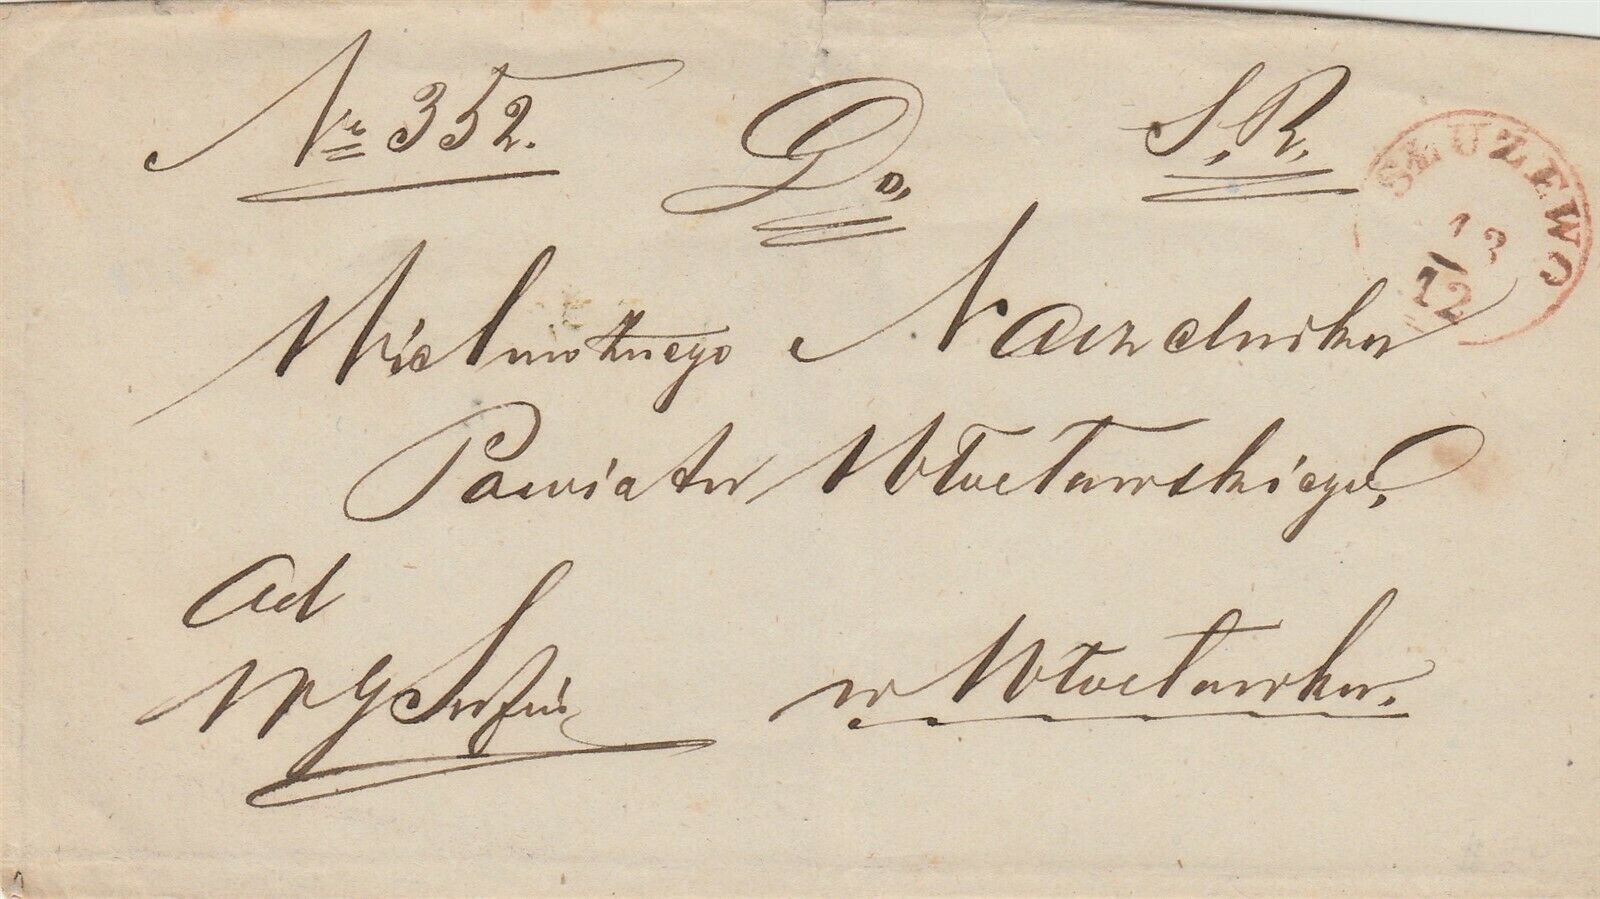 Nr 352.
Do,
S. R.
SŁUŻEWO
13
12
Wielmożnego Naczelnika
Powiatu Włocławskiego,
ad
w Włocławku.